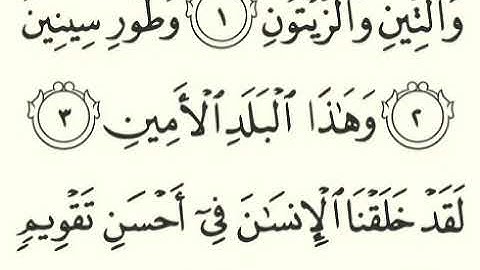 وَٱلتِّينِ وَٱلزَّيْتُونِ ١ وَطُورِ سِينِينَ
٢ وَهَٰذَا ٱلْبَلَدِ ٱلْأَمِينِ ٣
لَقَدْ خَلَقْنَا ٱلْإِنسَٰنَ فِىٓ أَحْسَنِ تَقْوِيمٍ